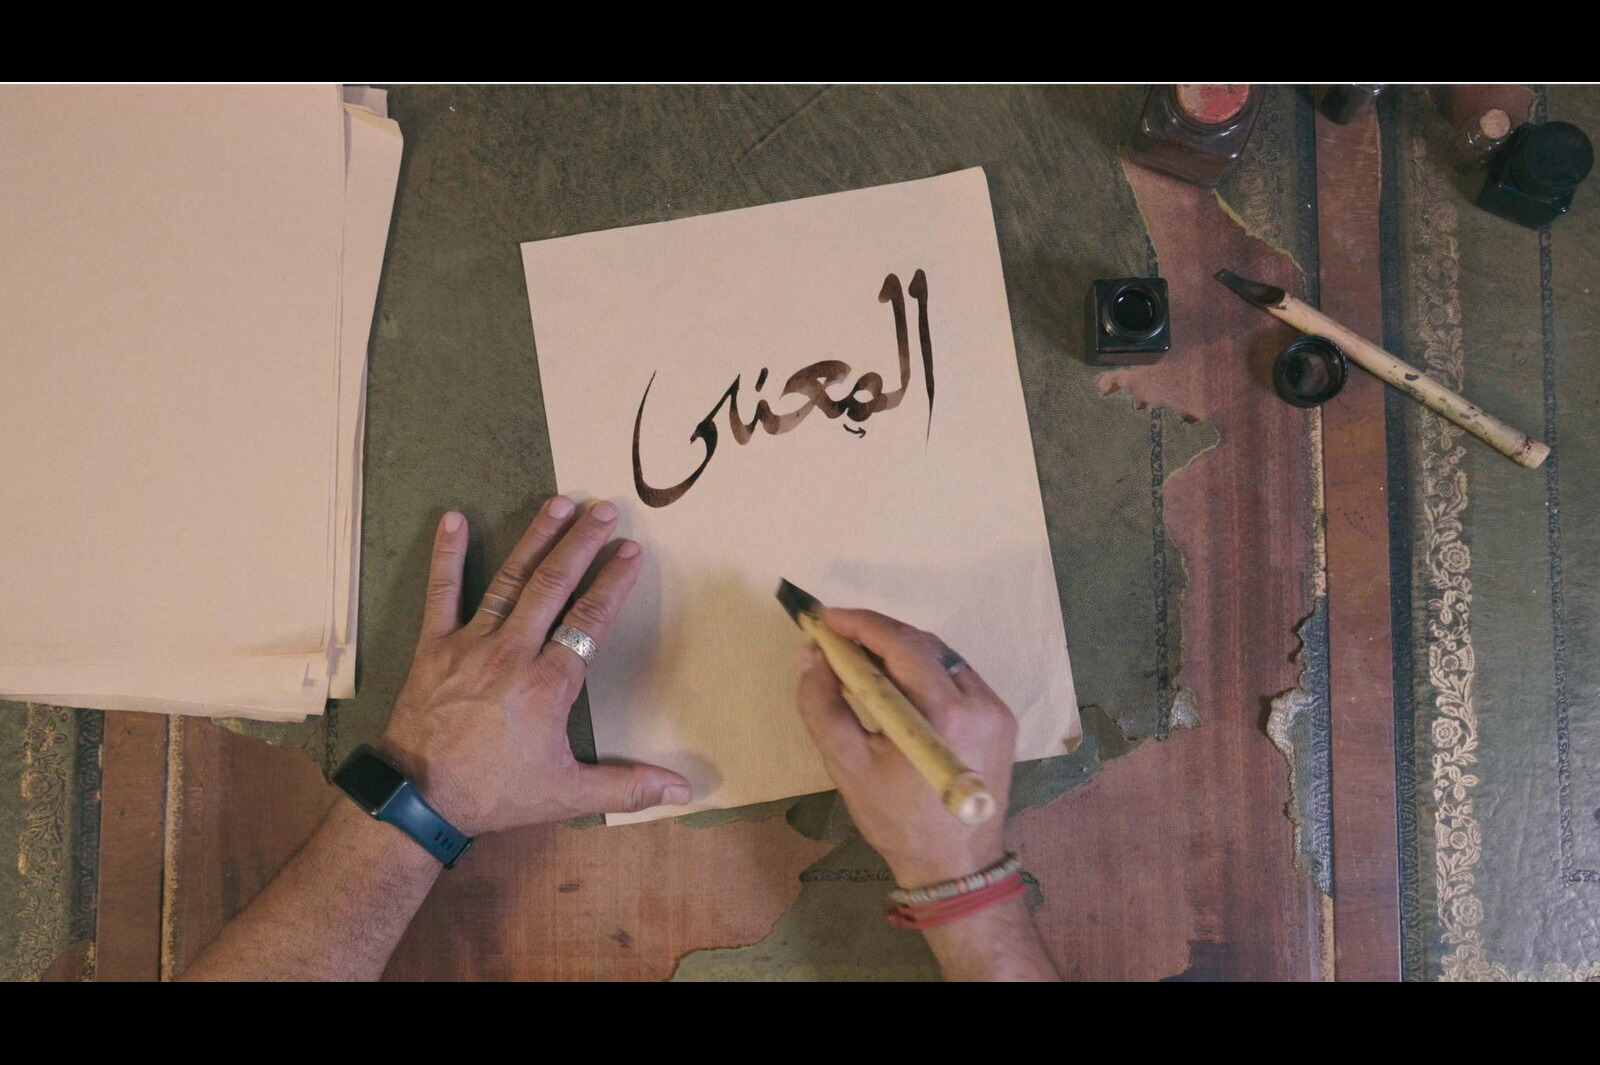 المعنى